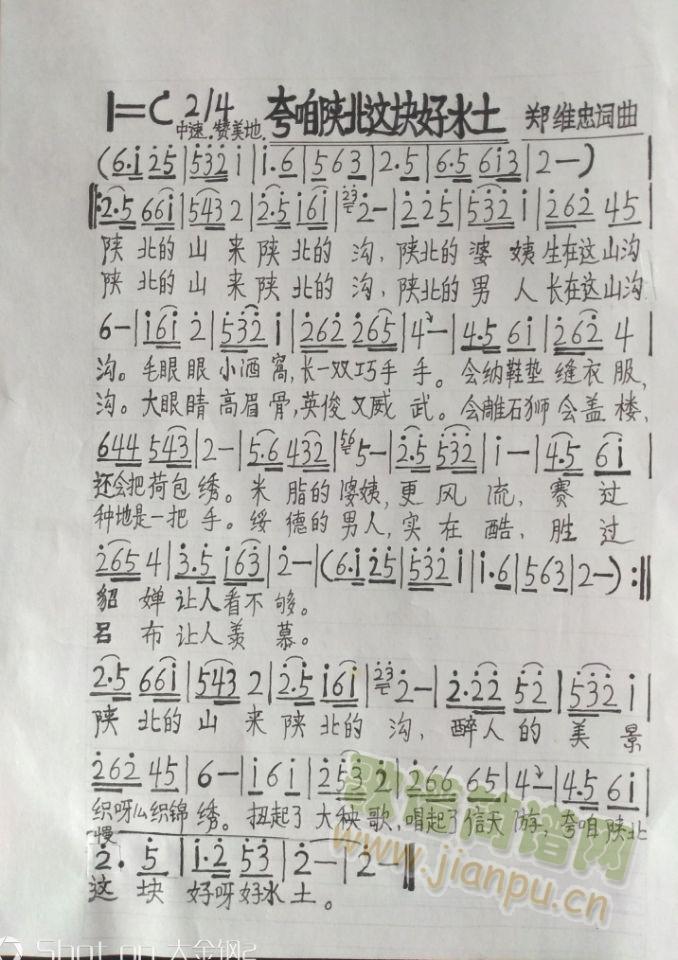 1=C 2/4 夸咱陕北这块好水土 郑维忠词曲
中速.赞美地.
(6.i 25|532 i|i.6|563|2.5|6.5 613|2—)
‖:2.5 66i|543 2|2.5 i6i|23 2—|2 25|532 i|262 45
陕北的山来陕北的沟,陕北的婆姨生在这山沟
陕北的山来陕北的沟,陕北的男人长在这山沟
6—|i6i 2|532 i|262 265|4—|4.5 6i|262 4|
沟。毛眼眼小酒窝,长一双巧手手。会纳鞋垫缝衣服,
沟。大眼睛高眉骨,英俊又威武。会雕石狮会盖楼,
644 543|2—|5.6 432|56 5—|2.5 532|i—|4.5 6i|
还会把荷包绣。米脂的婆姨,更风流,赛过
种地是一把手。绥德的男人,实在酷,胜过
265 4|3.5 i63|2—|(6.i 25|532 i|i.6|563|2—):‖
貂婵让人看不够。
吕布让人羡慕。
2.5 66i|543 2|2.5 i6i|23 2—|2.22 52|532 i|
陕北的山来陕北的沟,醉人的美景
262 45|6—|i6i|253 2|266 65|4—|4.5 6i|
织呀么织锦绣。扭起了大秧歌,唱起了信天游,夸咱陕北
慢
2. 5|i.2 53|2—|2—‖
这块好呀好水土。
www.jianpu.cn
Shot on 大金钢2